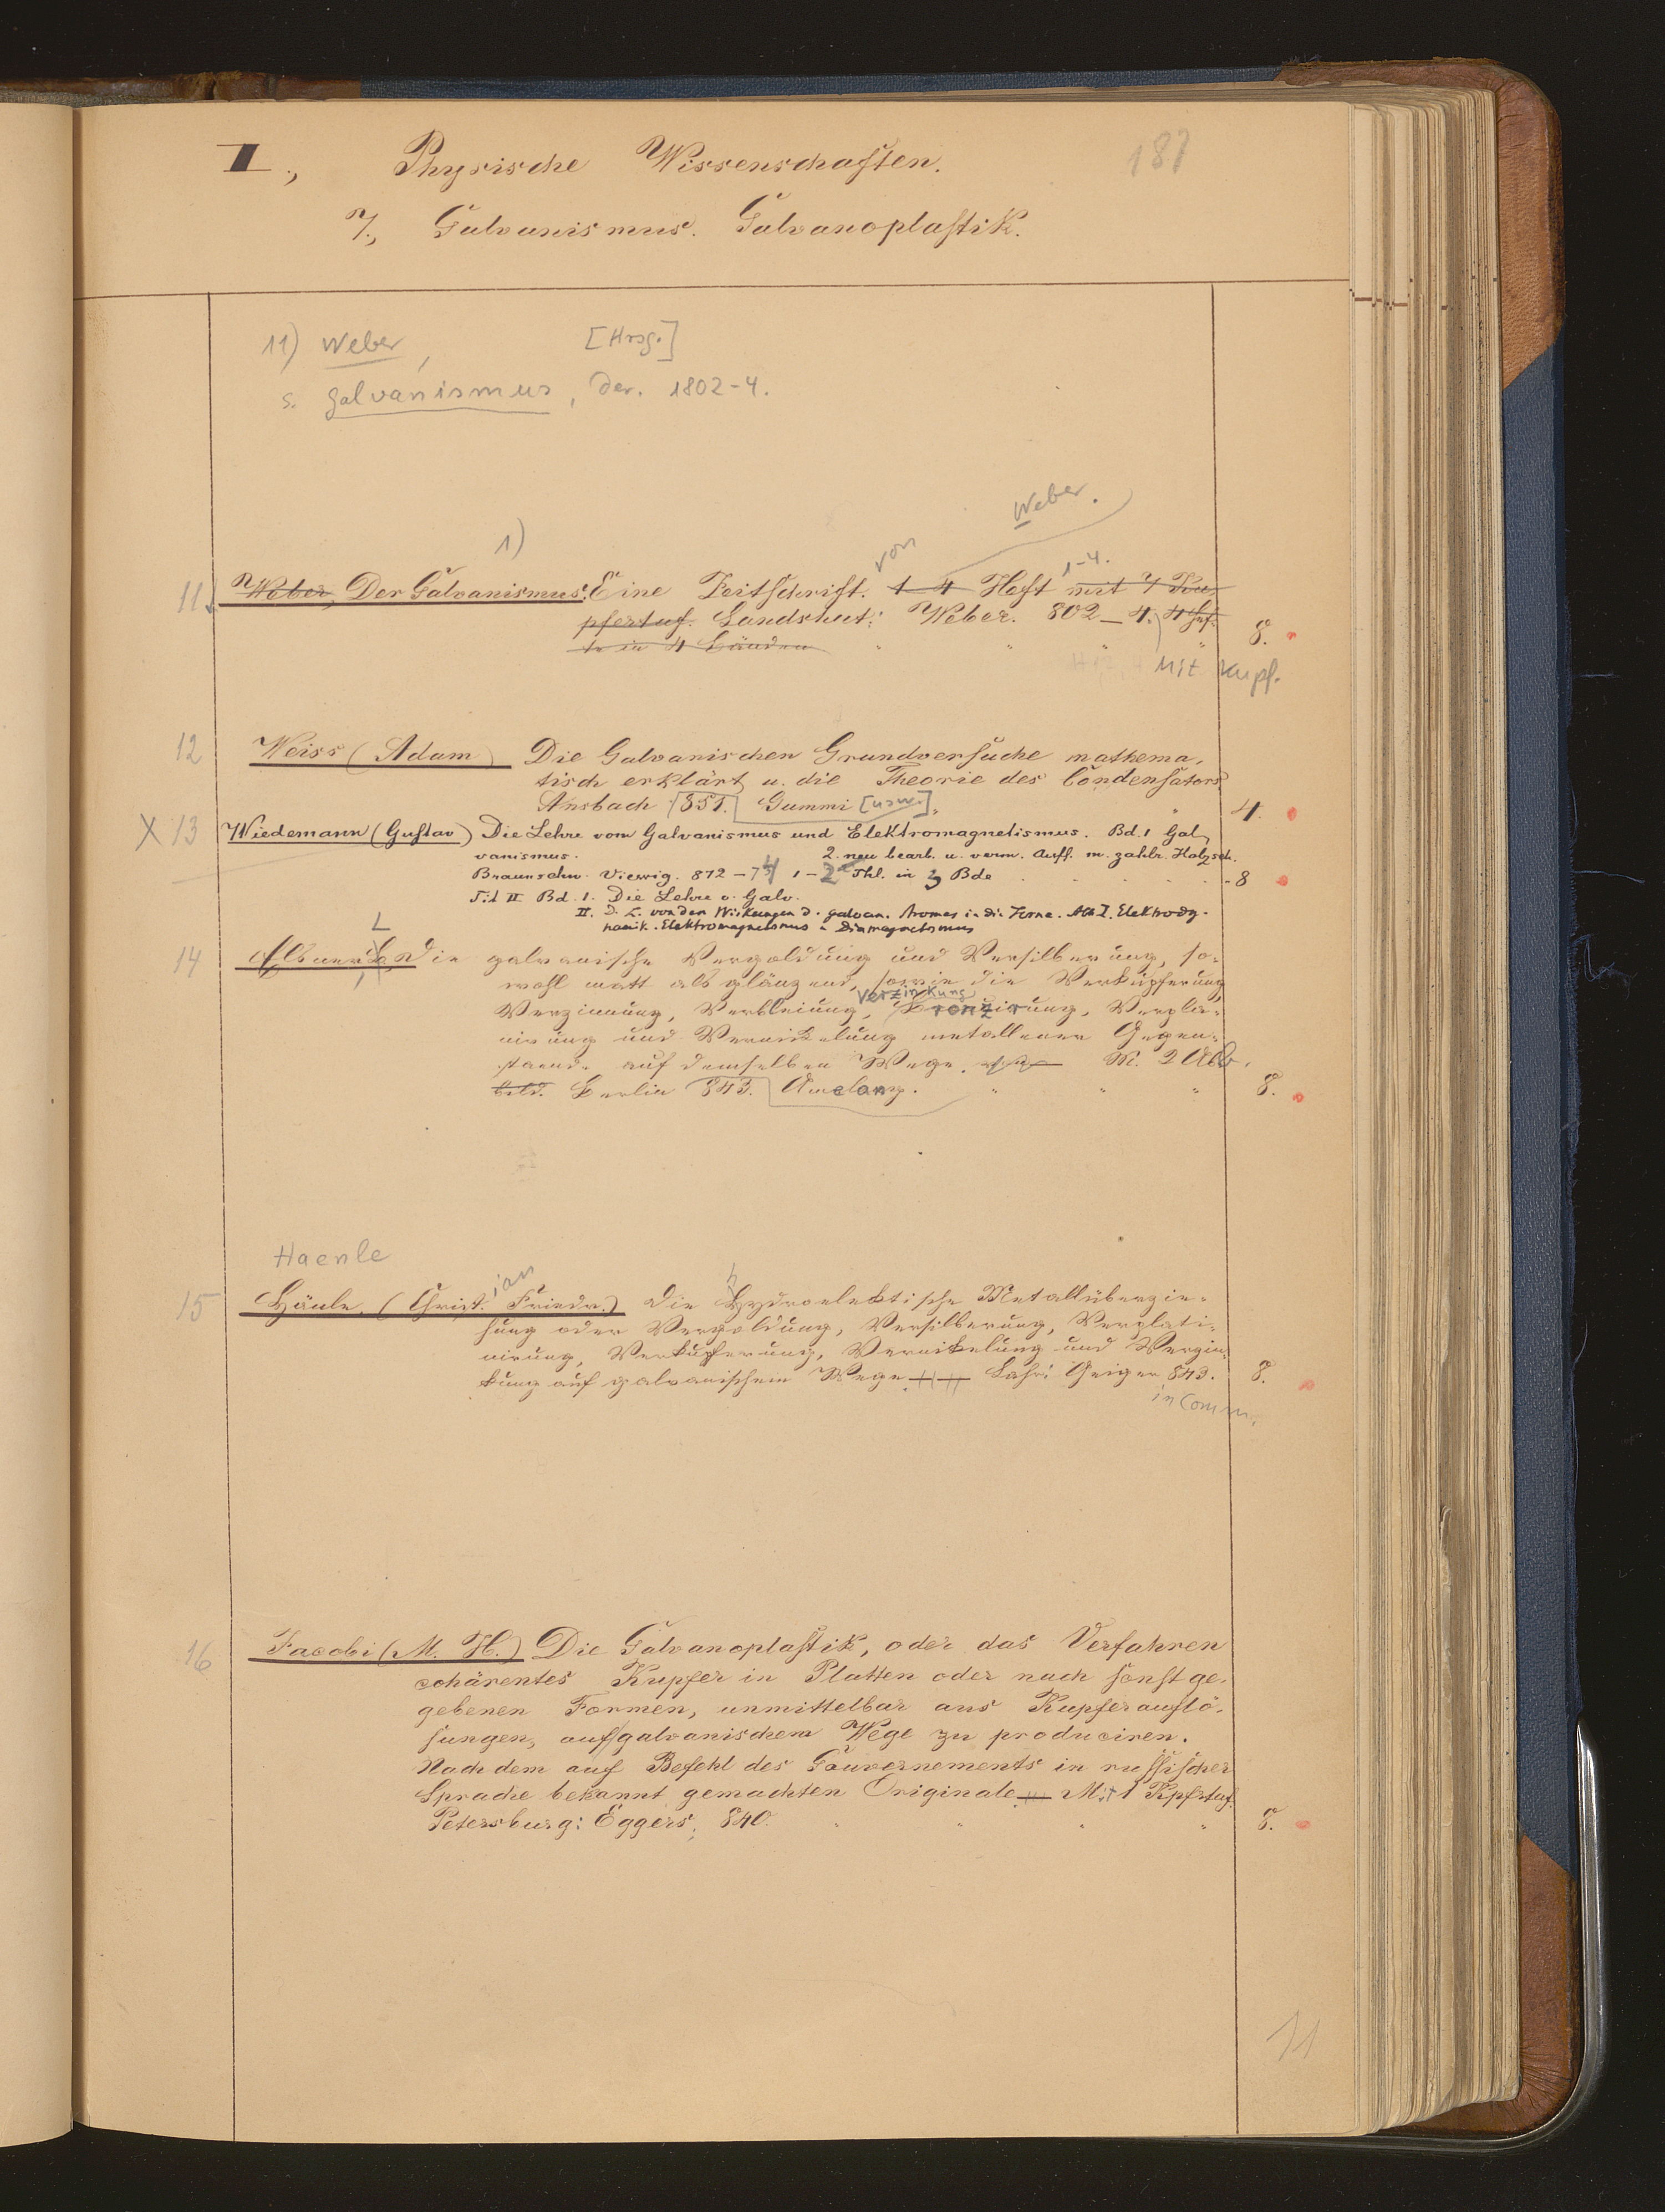 II., Physische Wissenschaften. 187
7., Galvanismus. Galvanoplastik.
11) Weber, [Hrsg.]
s. Galvanismus, Der. 1802-4.
Weber.
1) von 1-4.
11. Weber, Der Galvanismus. Eine Zeitschrift. 1-4 Heft mit 7 Ku-
pfertaf. Landshut: Weber. 802-4. 4 Hef-
te in 4 Bänden " " " " 8.
Mit Kupf.
12 Weiss (Adam) Die Galvanischen Grundversuche mathema-
tisch erklärt u. die Theorie des Condensators
Ansbach 851. Gummi [usw.]. " 4.
X 13 Wiedemann (Gustav) Die Lehre vom Galvanismus und Elektromagnetismus. Bd. 1 Gal-
vanismus. 2. neu bearb. u. verm. Aufl. m. zahlr. Holzsch.
Braunschw. Vieweg. 872-74 1-2 Thl. in 3 Bde - 8
Tit II Bd. 1. Die Lehre v. Galv.
II. D. L. von den Wirkungen d. galvan. Stromes in die Ferne. Abt I. Elektrody-
namik. Elektromagnetismus u Diamagnetismus
L
14 Elsner, L, Die galvanische Vergoldung und Versilberung, so-
wohl matt als glänzend, sowie die Verkupferung
Verzinkung
Verzinnung, Verbleiung, Bronzirung, Verplati-
nirung und Vernickelung metallener Gegen-
staende auf demselben Wege. M. 2 Abb.
bild. Berlin 843. Amelang. " " " 8.
Haenle
ian h
15 Hänle, (Christ. Friedr.) Die Hydroelektische Metallüberzie-
hung oder Vergoldung, Versilberung, Verplati-
nirung, Verkupferung, Vernickelung und Verzin-
kung auf galvanischem Wege. Lahr: Geiger 843. 8.
in Comm.
16 Jacobi (M. H.) Die Galvanoplastik, oder das Verfahren
cohärentes Kupfer in Platten oder nach sonst ge-
gebenen Formen, unmittelbar aus Kupferauflö-
sungen, auf galvanischem Wege zu produciren.
Nach dem auf Befehl des Gouvernements in russischer
Sprache bekannt gemachten Originale. Mit 1 Kpfrtaf.
Petersburg: Eggers, 840. " " " " 8.
11